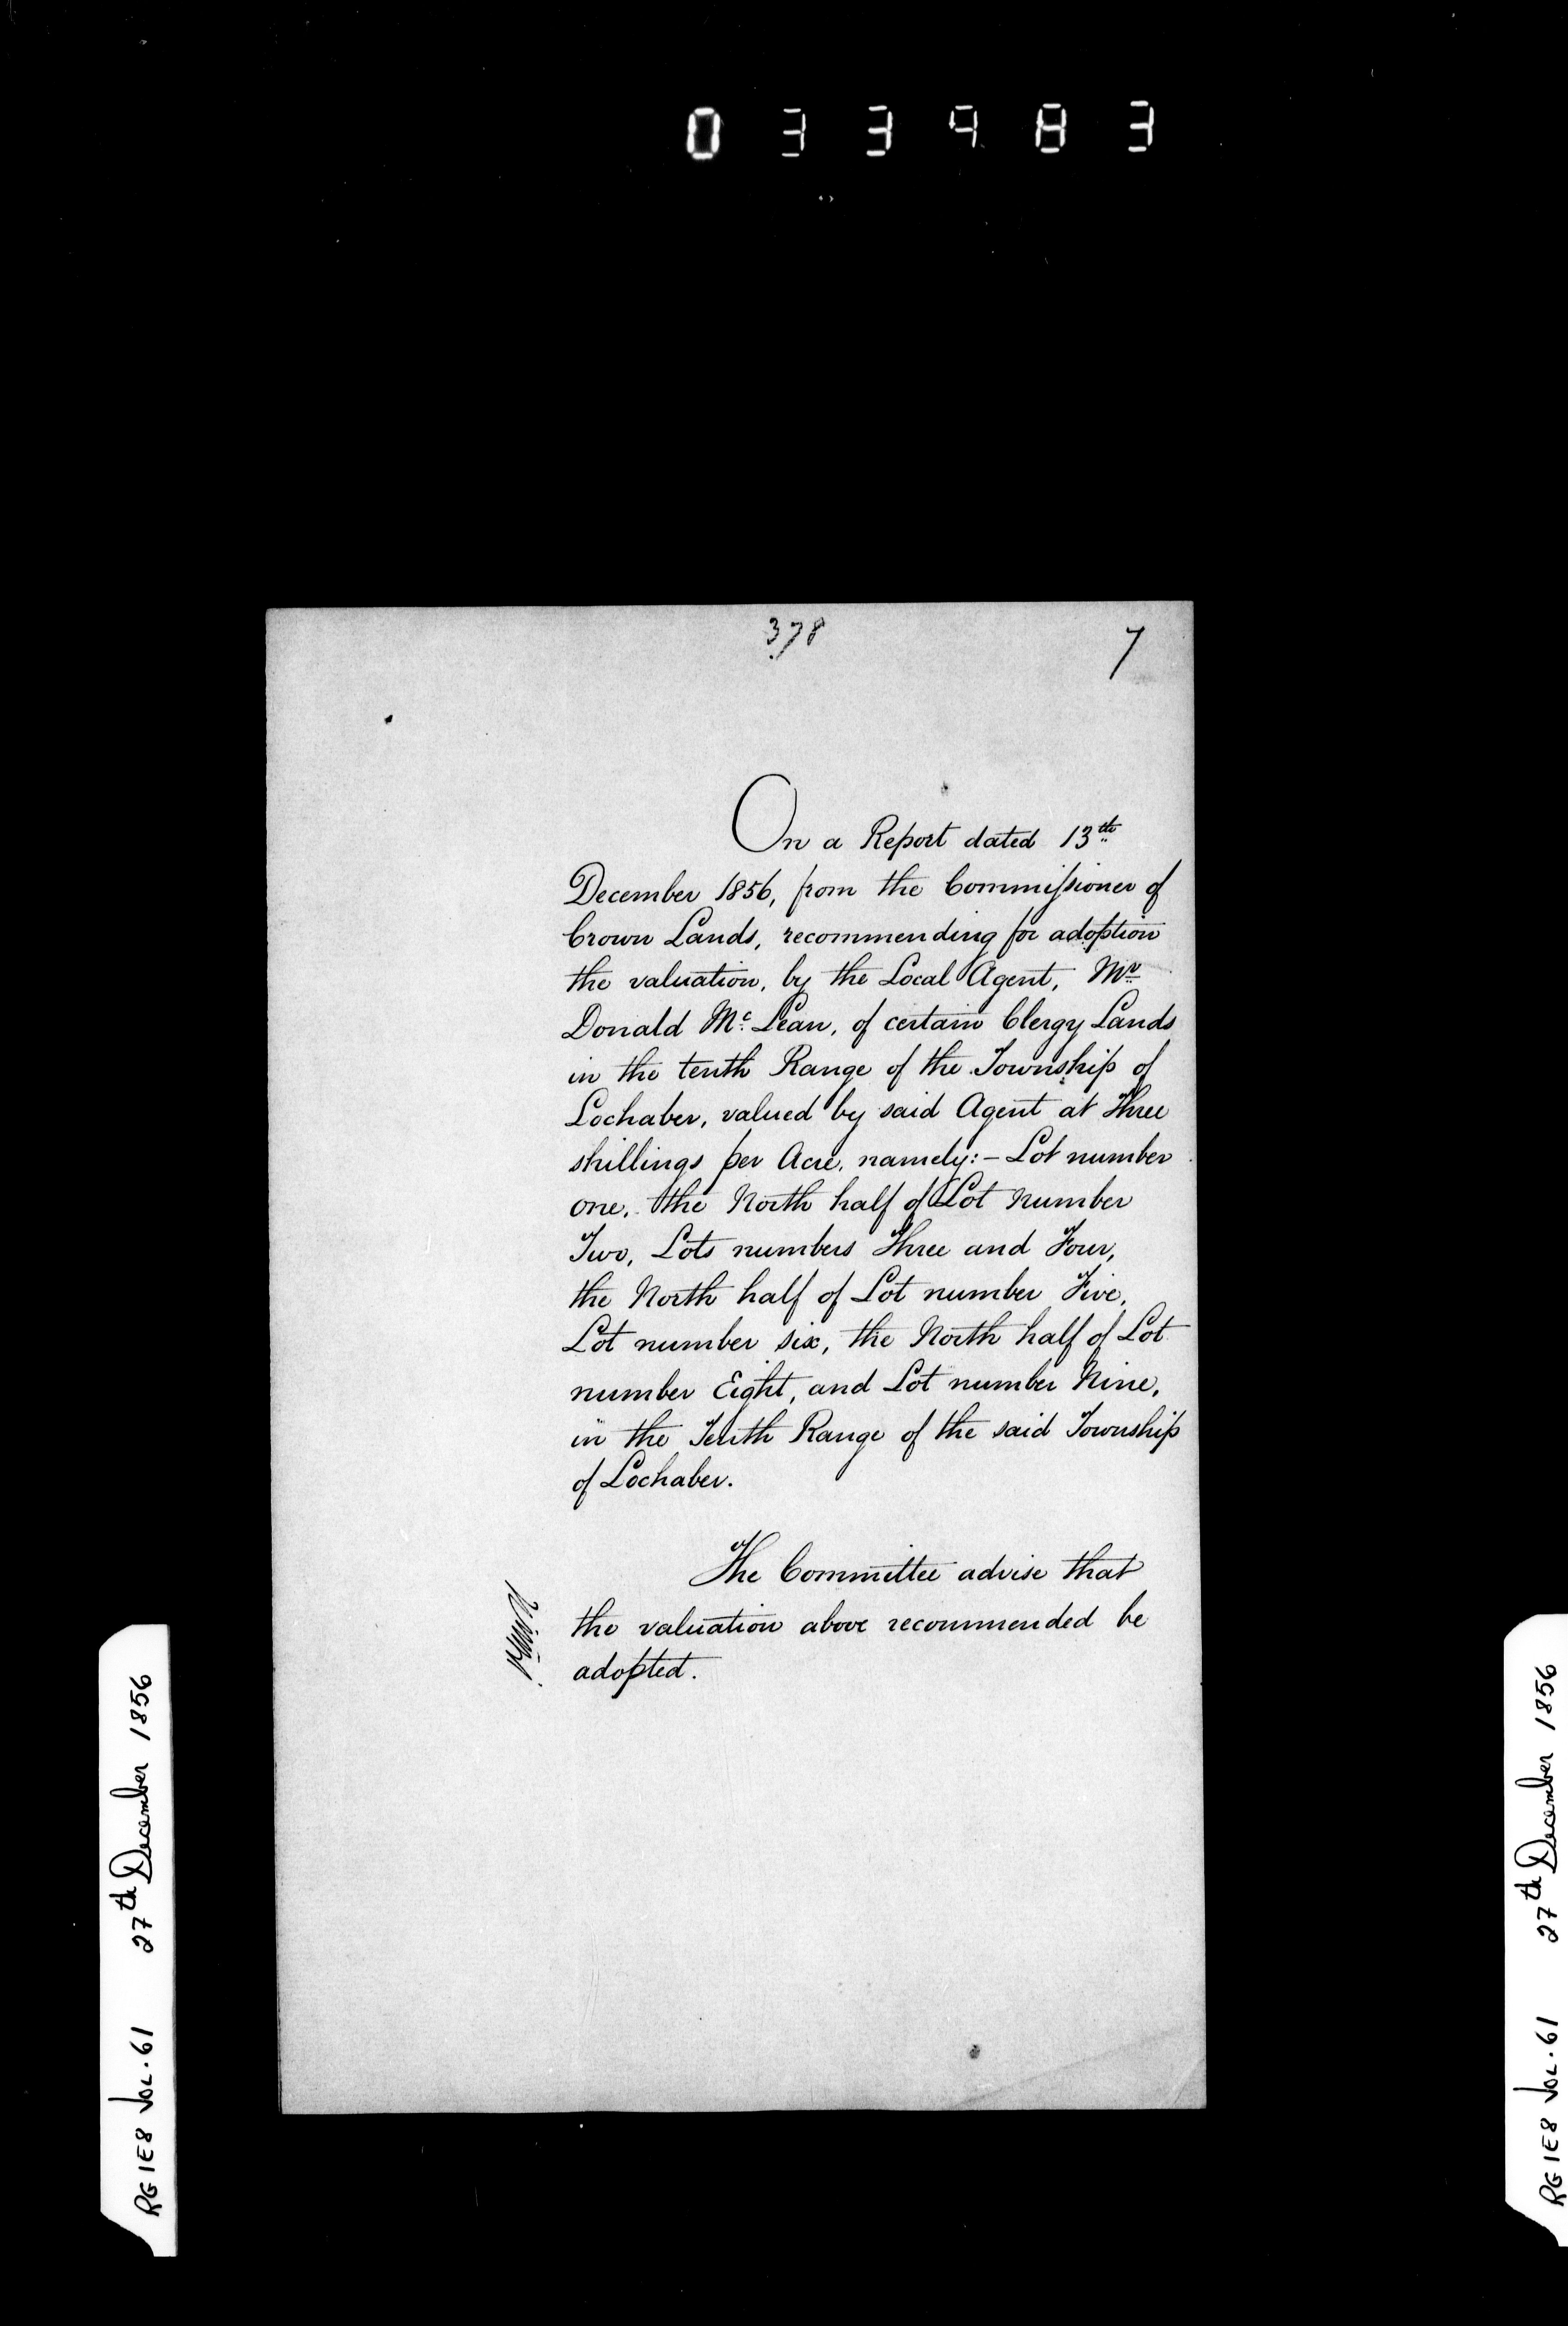 033983
378
7
On a Report dated 13th
December 1856, from the Commissioner of
Crown Lands, recommending for adoption
the valuation, by the Local Agent, Mr
Donald Mc Lean, of certain Clergy Lands
in the tenth Range of the Township of
Lochaber, valued by said Agent at Three
shillings per Acre, namely:- Lot number
one, the North half of Lot number
Two, Lots numbers Three and Four,
the North half of Lot number Five,
Lot number six, the North half of Lot
number Eight, and Lot number Nine,
in the Tenth Range of the said Township
of Lochaber.
The Committee advise that
the valuation above recommended be
adopted.
RG 1E8 VOL.61 27th December 1856
RG 1E8 VOL.61 27th December 1856